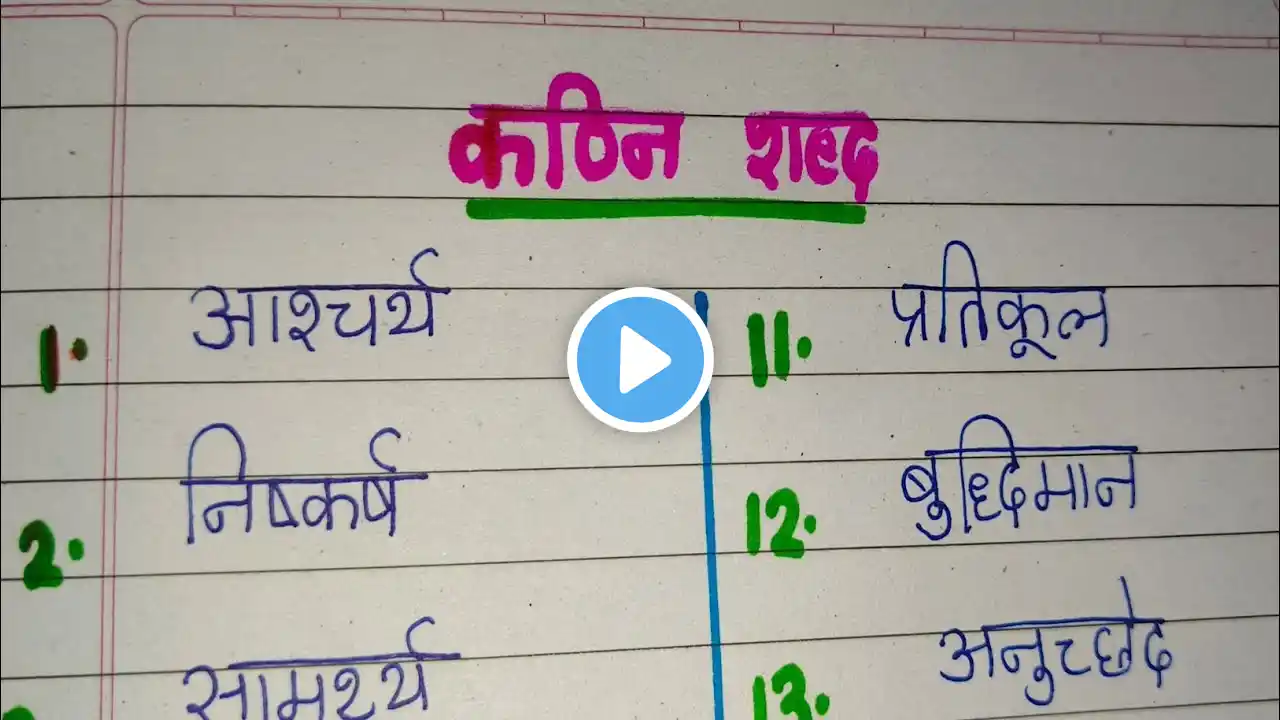 कठिन शब्द
1. आश्चर्य
2. निष्कर्ष
सामर्थ्य
11. प्रतिकूल
12. बुध्दिमान
13. अनुच्छेद